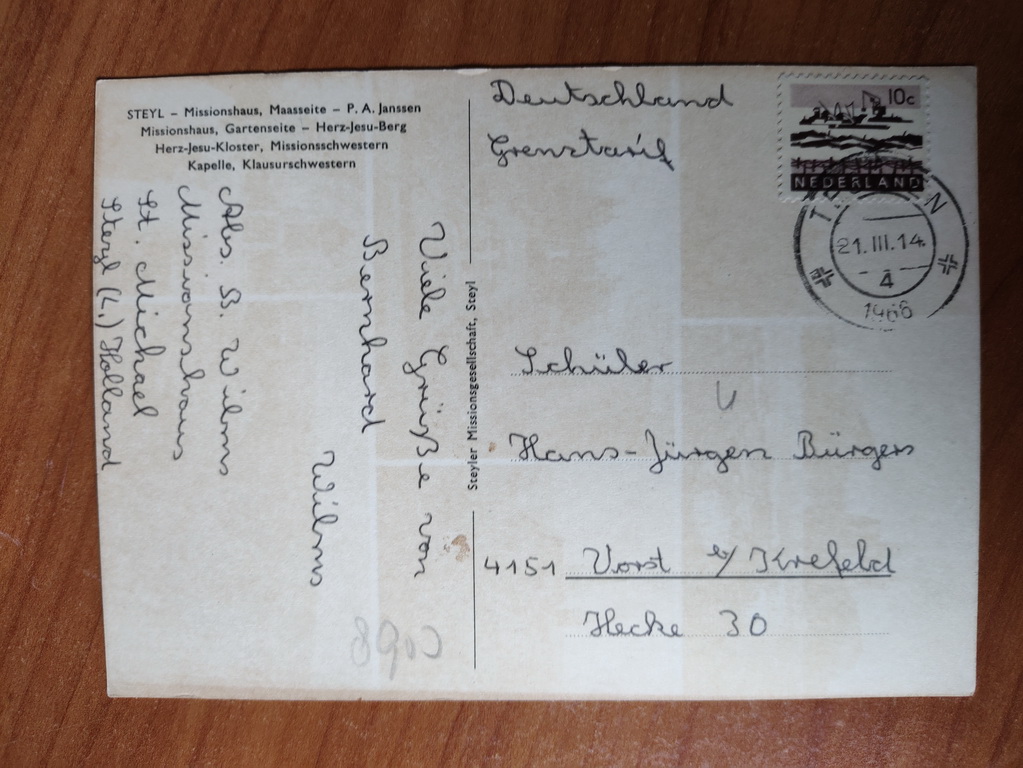 STEYL – Missionshaus, Maasseite – P. A. Janssen
Missionshaus, Gartenseite – Herz-Jesu-Berg
Herz-Jesu-Kloster, Missionsschwestern
Kapelle, Klausurschwestern
Viele Grüße von
Bernhard
Wilms
Abs. B. Wilms
Missionshaus
St. Michael
Steyl (L.) Holland
Steyler Missionsgesellschaft, Steyl
Deutschland
Grenztarif
10c
NEDERLAND
21.III.14
4
1968
Schüler
Hans-Jürgen Bürgers
4151 Vorst b/ Krefeld
Hecke 30